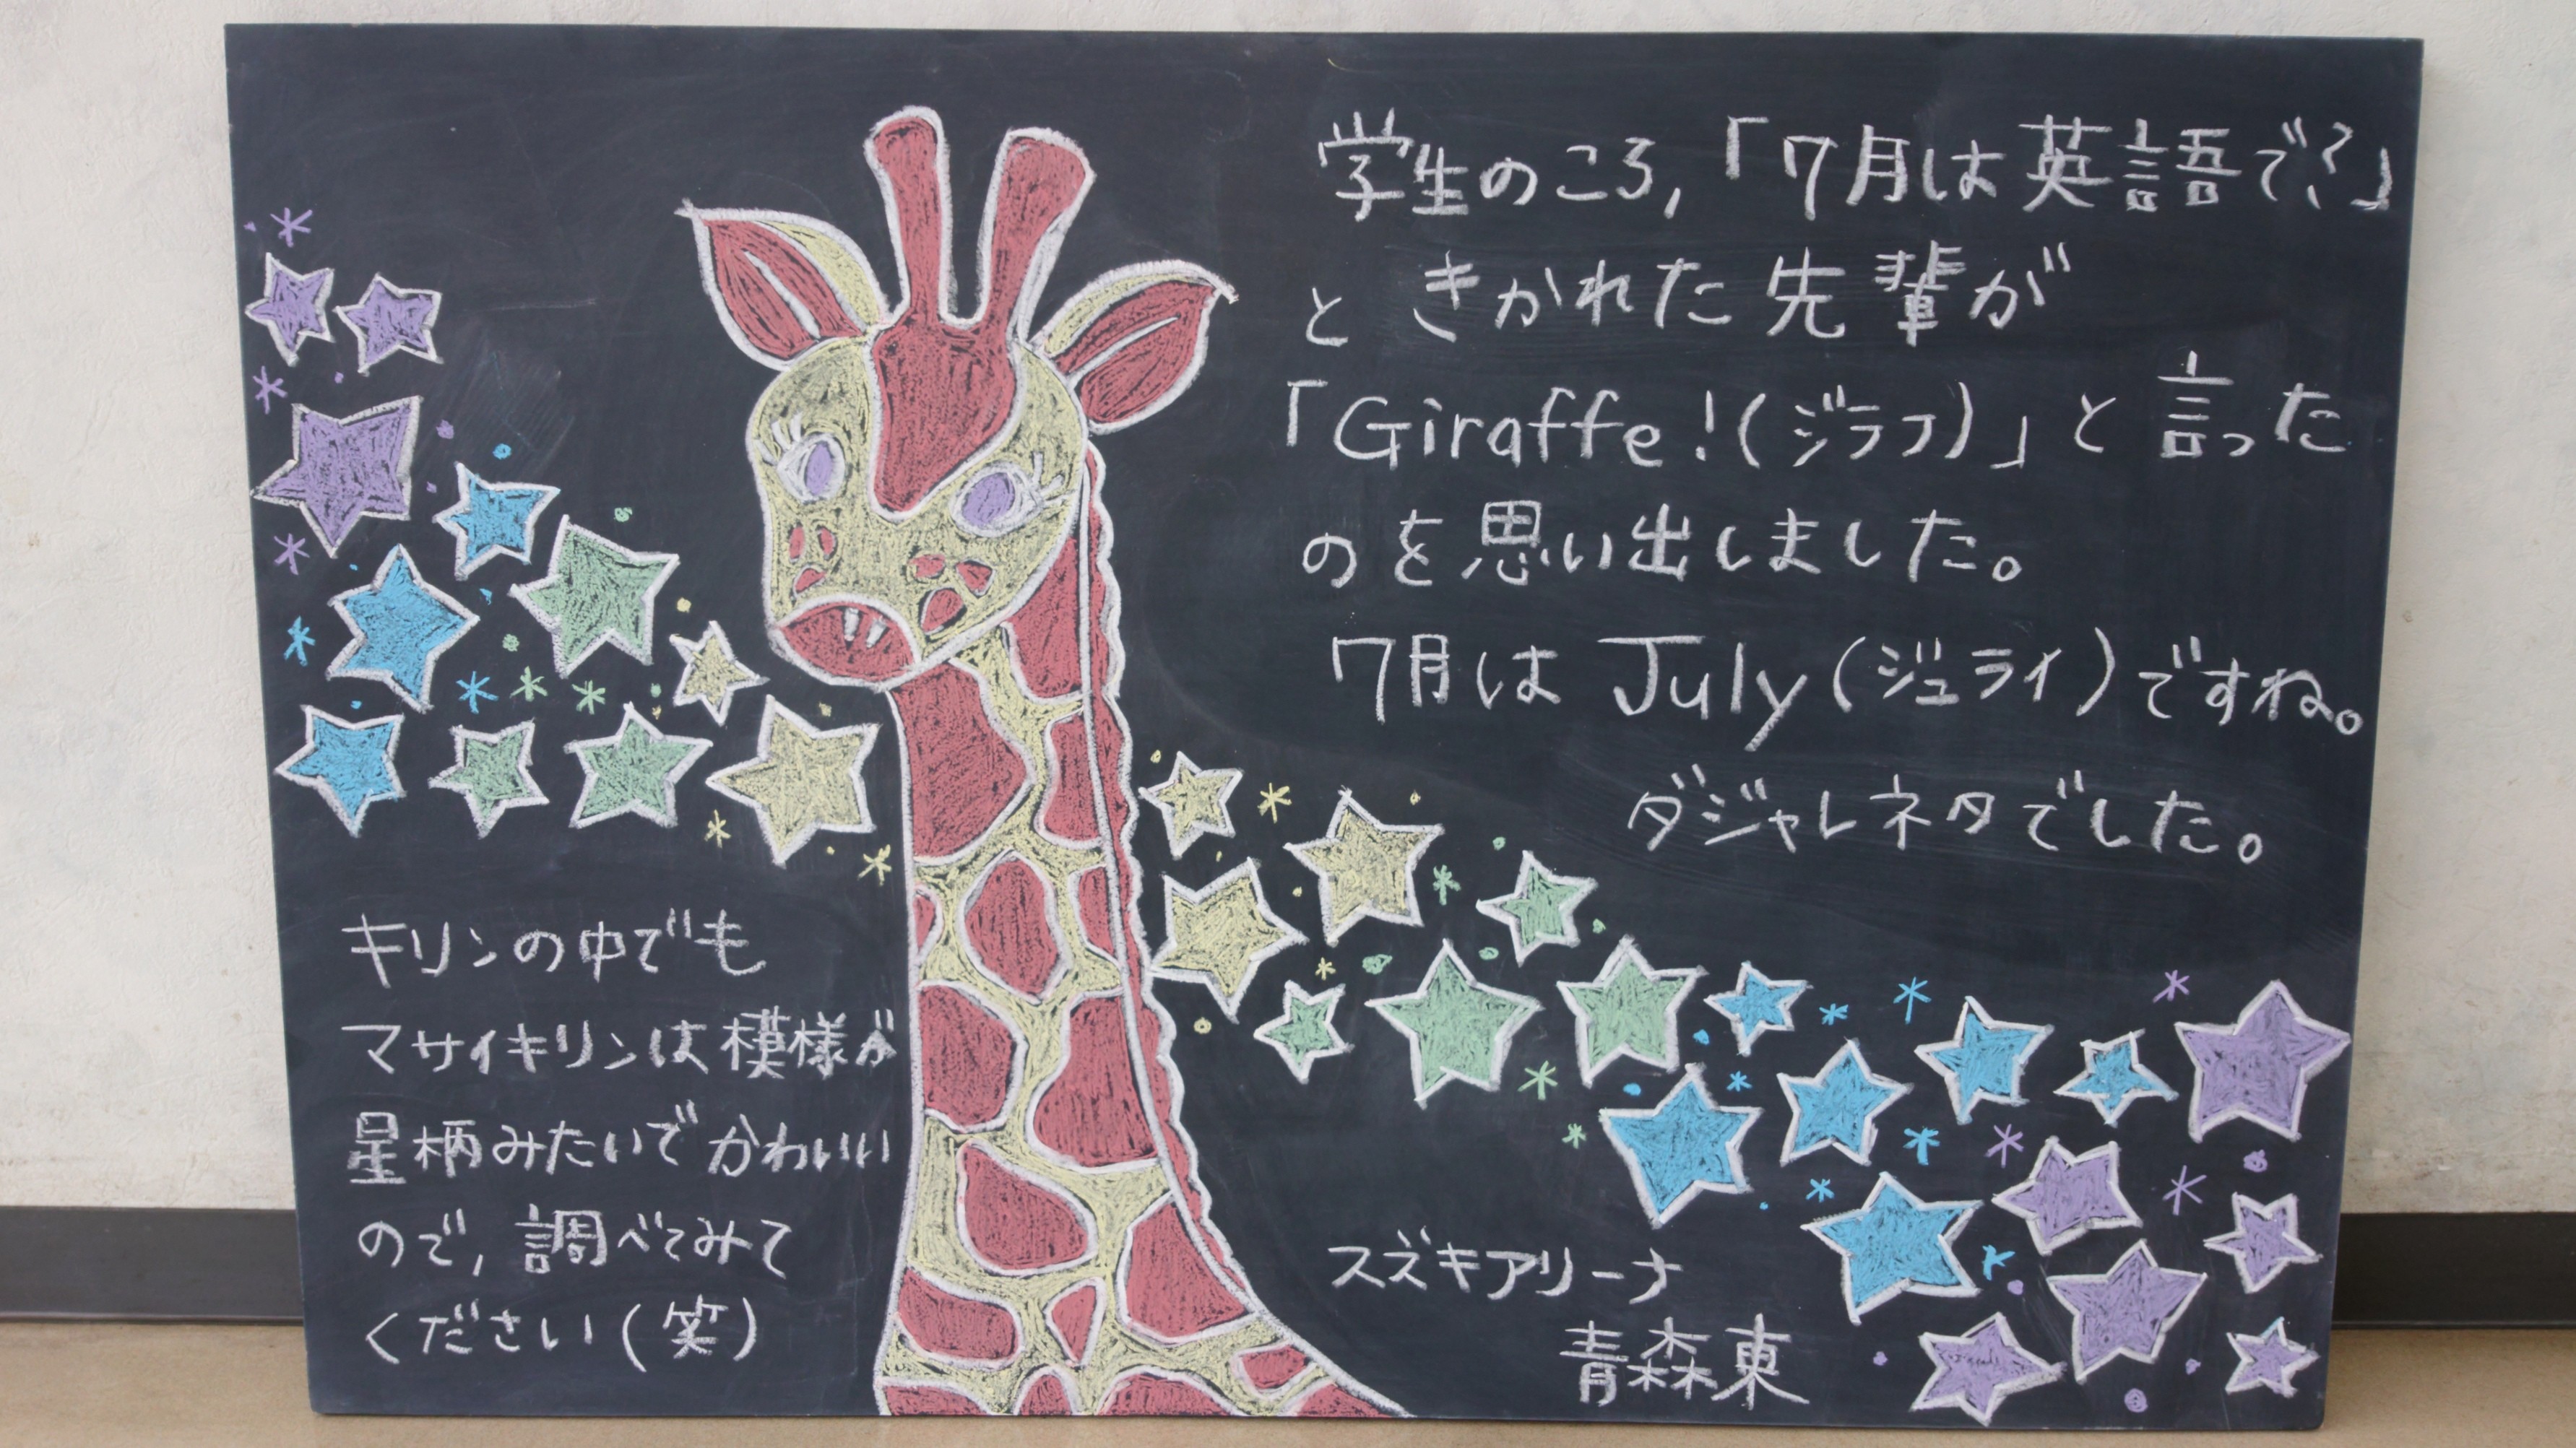 学生のころ,「7月は英語で?」
ときかれた先輩が
「Giraffe!(ジラフ)」と言った
のを思い出しました。
7月はJuly(ジュライ)ですね。
ダジャレネタでした。
キリンの中でも
マサイキリンは模様が
星柄みたいでかわいい
ので,調べてみて
ください(笑)
スズキアリーナ
青森東